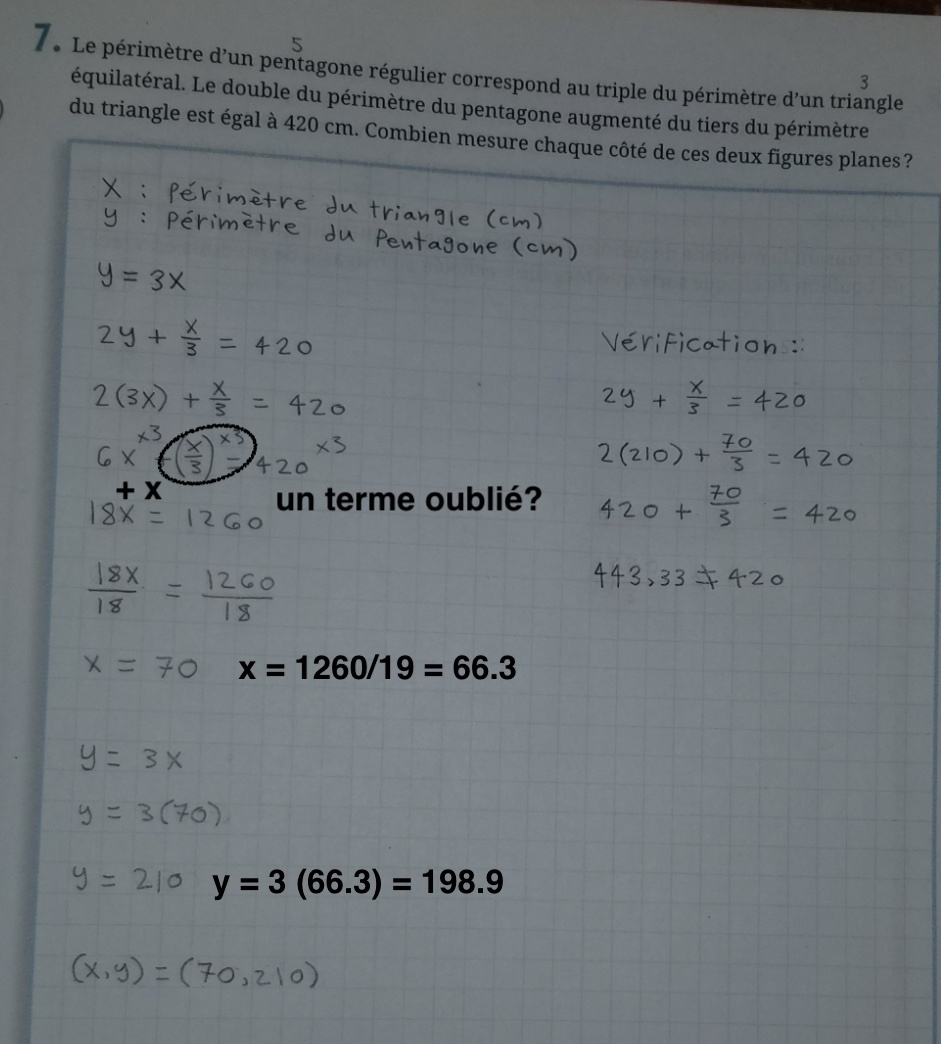 5
3
7. Le périmètre d'un pentagone régulier correspond au triple du périmètre d'un triangle
équilatéral. Le double du périmètre du pentagone augmenté du tiers du périmètre
du triangle est égal à 420 cm. Combien mesure chaque côté de ces deux figures planes?
X : Périmètre du triangle (cm)
y : Périmètre du Pentagone (cm)
y = 3X
2y + X/3 = 420
2(3X) + X/3 = 420
6X ×3 + (X/3) ×3 = 420 ×3
+ x
un terme oublié?
18X = 1260
18X/18 = 1260/18
X = 70 x = 1260/19 = 66.3
y = 3X
y = 3(70)
y = 210 y = 3 (66.3) = 198.9
(X,y) = (70,210)
Vérification :
2y + X/3 = 420
2(210) + 70/3 = 420
420 + 70/3 = 420
443,33 ≠ 420